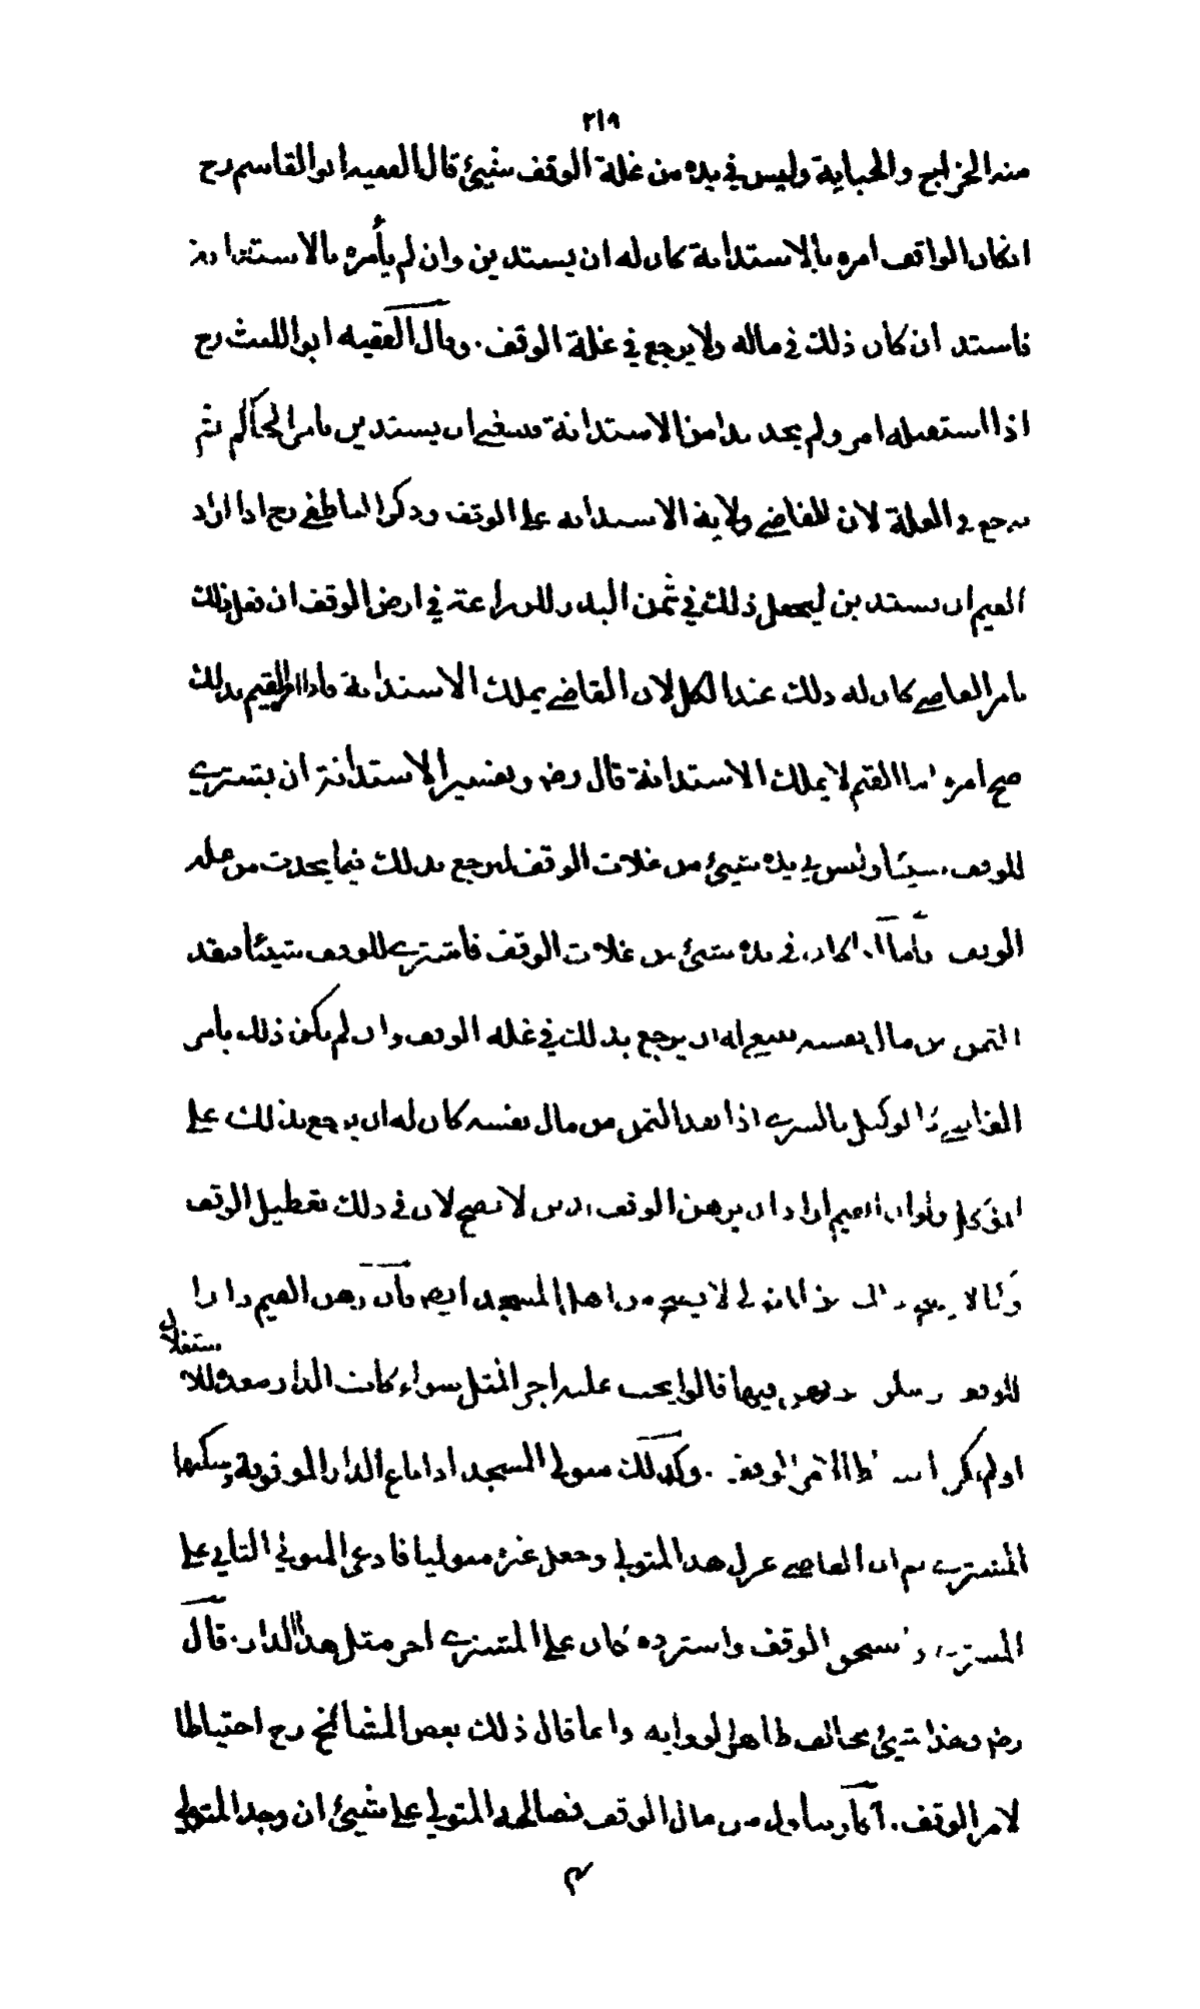 ٢١٩
منه الخراج والجباية وليس في يده من غلة الوقف شيئ قال الفقيه ابو القاسم رح
ان كان الواقف امره بالاستدانة كان له ان يستدين وان لم يأمره بالاستدانة
فاستدان كان ذلك في ماله ولا يرجع في غلة الوقف. وقال الفقيه ابو الليث رح
اذا استقبله امر ولم يجد بدا من الاستدانة ينبغي ان يستدين بامر الحاكم ثم
يرجع في الغلة لان للقاضي ولاية الاستدانة على الوقف وذكر الناطفي رح اذا اراد
القيم ان يستدين ليجعل ذلك في ثمن البذر للزراعة في ارض الوقف ان فعل ذلك
بامر القاضي كان له ذلك عند الكل لان القاضي يملك الاستدانة فاذا امر القيم بذلك
صح امره اما القيم لا يملك الاستدانة قال رض وتفسير الاستدانة ان يشتري
للوقف شيئا وليس في يده شيئ من غلات الوقف ليرجع بذلك فيما يحدث من غلة
الوقف فاما اذا كان في يده شيئ من غلات الوقف فاشترى للوقف شيئا ونقد
الثمن من مال نفسه ينبغي له ان يرجع بذلك في غلة الوقف وان لم يكن ذلك بامر
القاضي كالوكيل بالشرى اذا نقد الثمن من مال نفسه كان له ان يرجع بذلك على
الموكل ولو ان القيم اراد ان يرهن الوقف بدين لا يصح لان في ذلك تعطيل الوقف
وكذا لا يصح من اهل المسجد ايضا فان رهن القيم دارا
للوقف وسكن المرتهن فيها قالوا يجب عليه اجر المثل سواء كانت الدار معدة للا
ستغلال
او لم يكن نظرا لامر الوقف. وكذلك متولي المسجد اذا باع الدار الموقوفة وسكنها
المشتري ثم ان القاضي عزل هذا المتولي وجعل غيره متوليا فادعى المتولي الثاني على
المشتري واستحق الوقف واسترده كان على المشتري اجر مثل هذا الدار. قال
رض وهذا شيئ يخالف ظاهر الرواية وانما قال ذلك بعض المشائخ رح احتياطا
لامر الوقف. من مال الوقف فصالحه المتولي على شيئ ان وجد المتولي